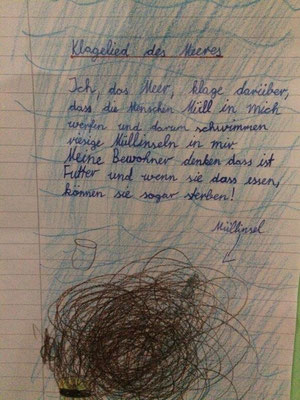 Klagelied des Meeres
Ich, das Meer, klage darüber,
dass die Menschen Müll in mich
werfen und darum schwimmen
riesige Müllinseln in mir
Meine Bewohner denken dass ist
Futter und wenn sie dass essen,
können sie sogar sterben!
Müllinsel